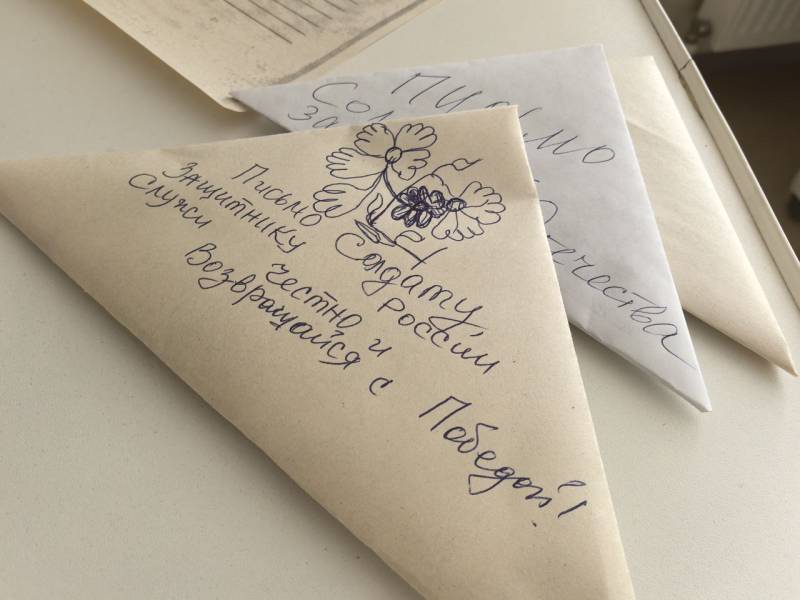 Письмо Солдату
Защитнику России
Служи честно и
Возвращайся с Победой!
Письмо
Отечества